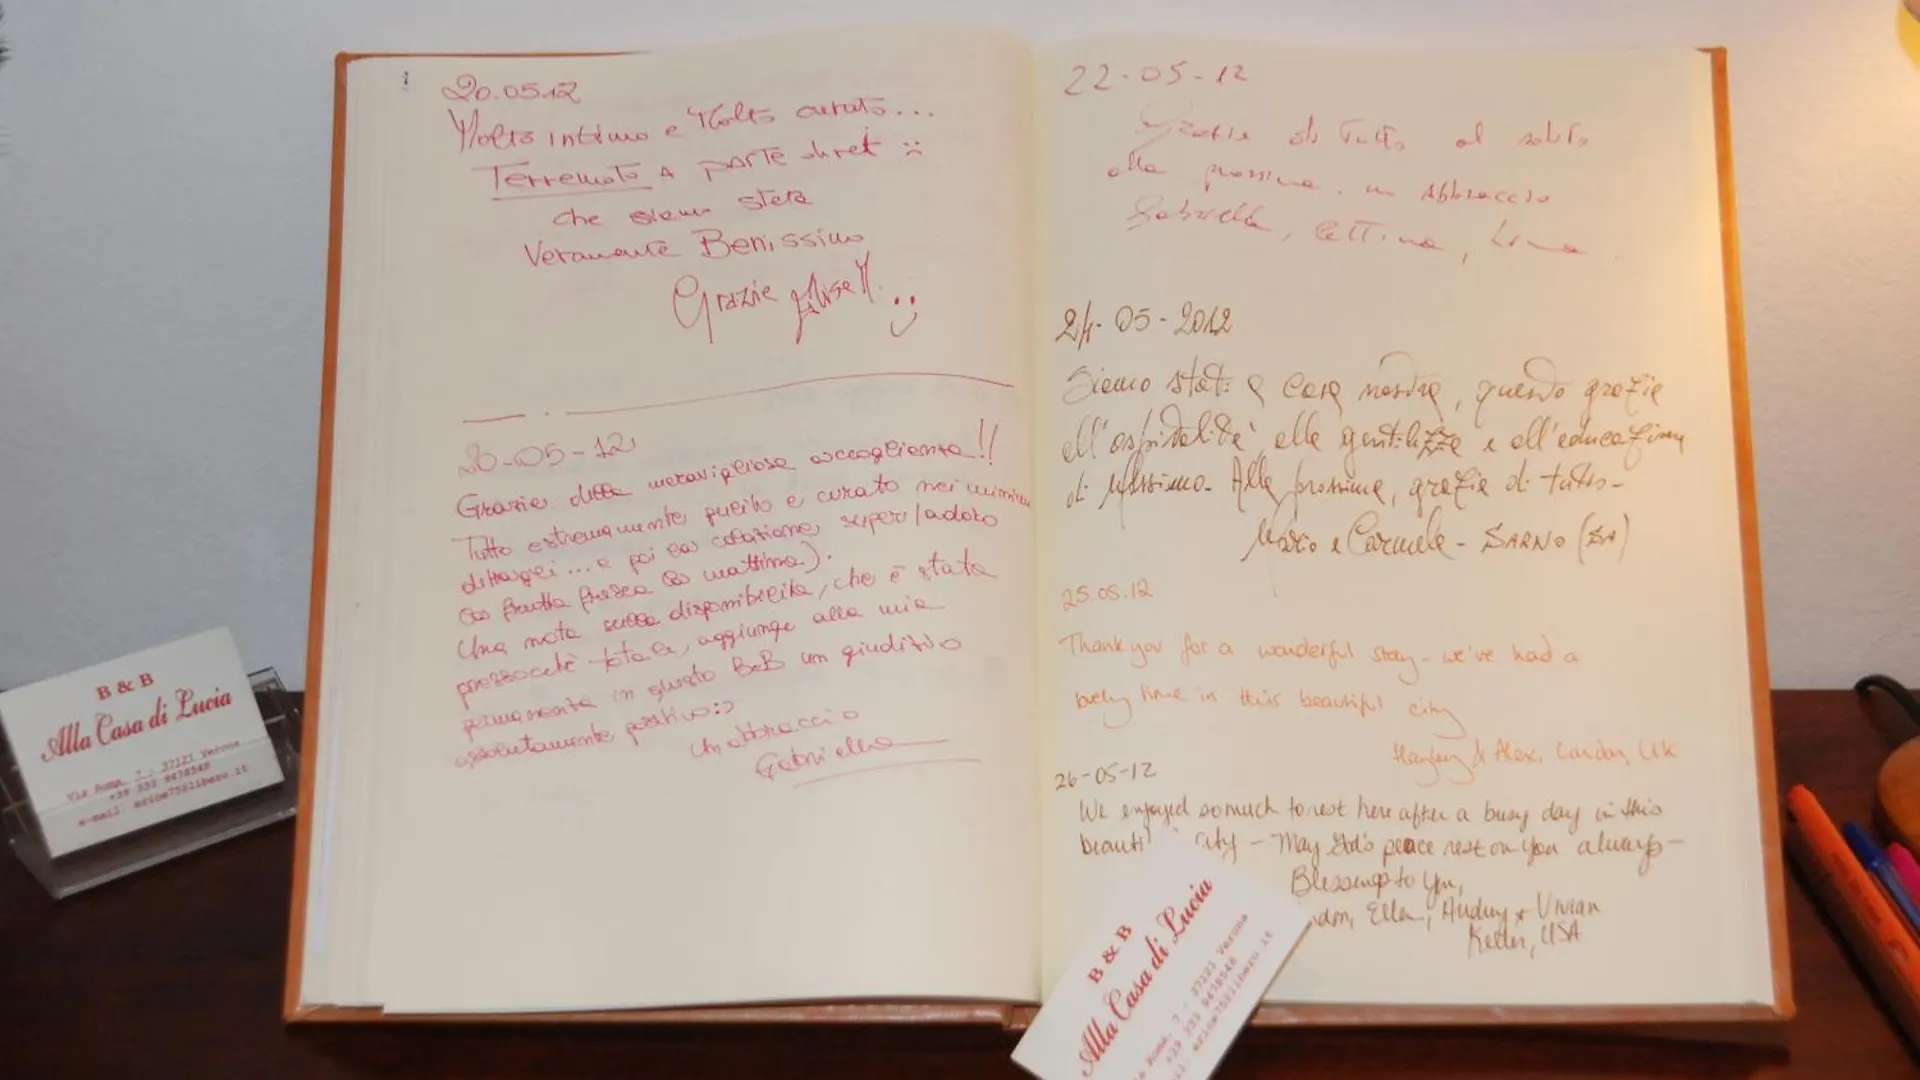 20.05.12
Molto intimo e Molto curato...
Terremoto a parte
che siamo state
Veramente Benissimo
Grazie
20-05-12
Grazie della meravigliosa accoglienza!!
Tutto estremamente pulito e curato nei minimi
dettagli... e poi la colazione, super (adoro
la frutta fresca la mattina).
Una nota sulla disponibilità, che è stata
pressocché totale, aggiunge alla mia
permanenza in questo B&B un giudizio
assolutamente positivo:)
Un abbraccio
Gabriella
22-05-12
Grazie di tutto
alla prossima. un Abbraccio
Gabriella, Cettina,
24-05-2012
Siamo stati a casa nostra, questo grazie
all'ospitalità alla gentilezza e all'educazione
di Massimo. Alla prossima, grazie di tutto-
Mario e Carmela - SARNO (SA)
25.05.12
Thank you for a wonderful stay - we've had a
lovely time in this beautiful city
Hayley & Alex, London, UK
26-05-12
We enjoyed so much to rest here after a busy day in this
beauti city - May God's peace rest on you always-
Blessings to you,
Ellen, Audrey & Vivian
Keller, USA
B & B
Alla Casa di Lucia
Via Roma, 7 - 37121 Verona
+39 333 9478548
e-mail:
B & B
Alla Casa di Lucia
Roma, 7 - 37121 Verona
+39 333 9478548